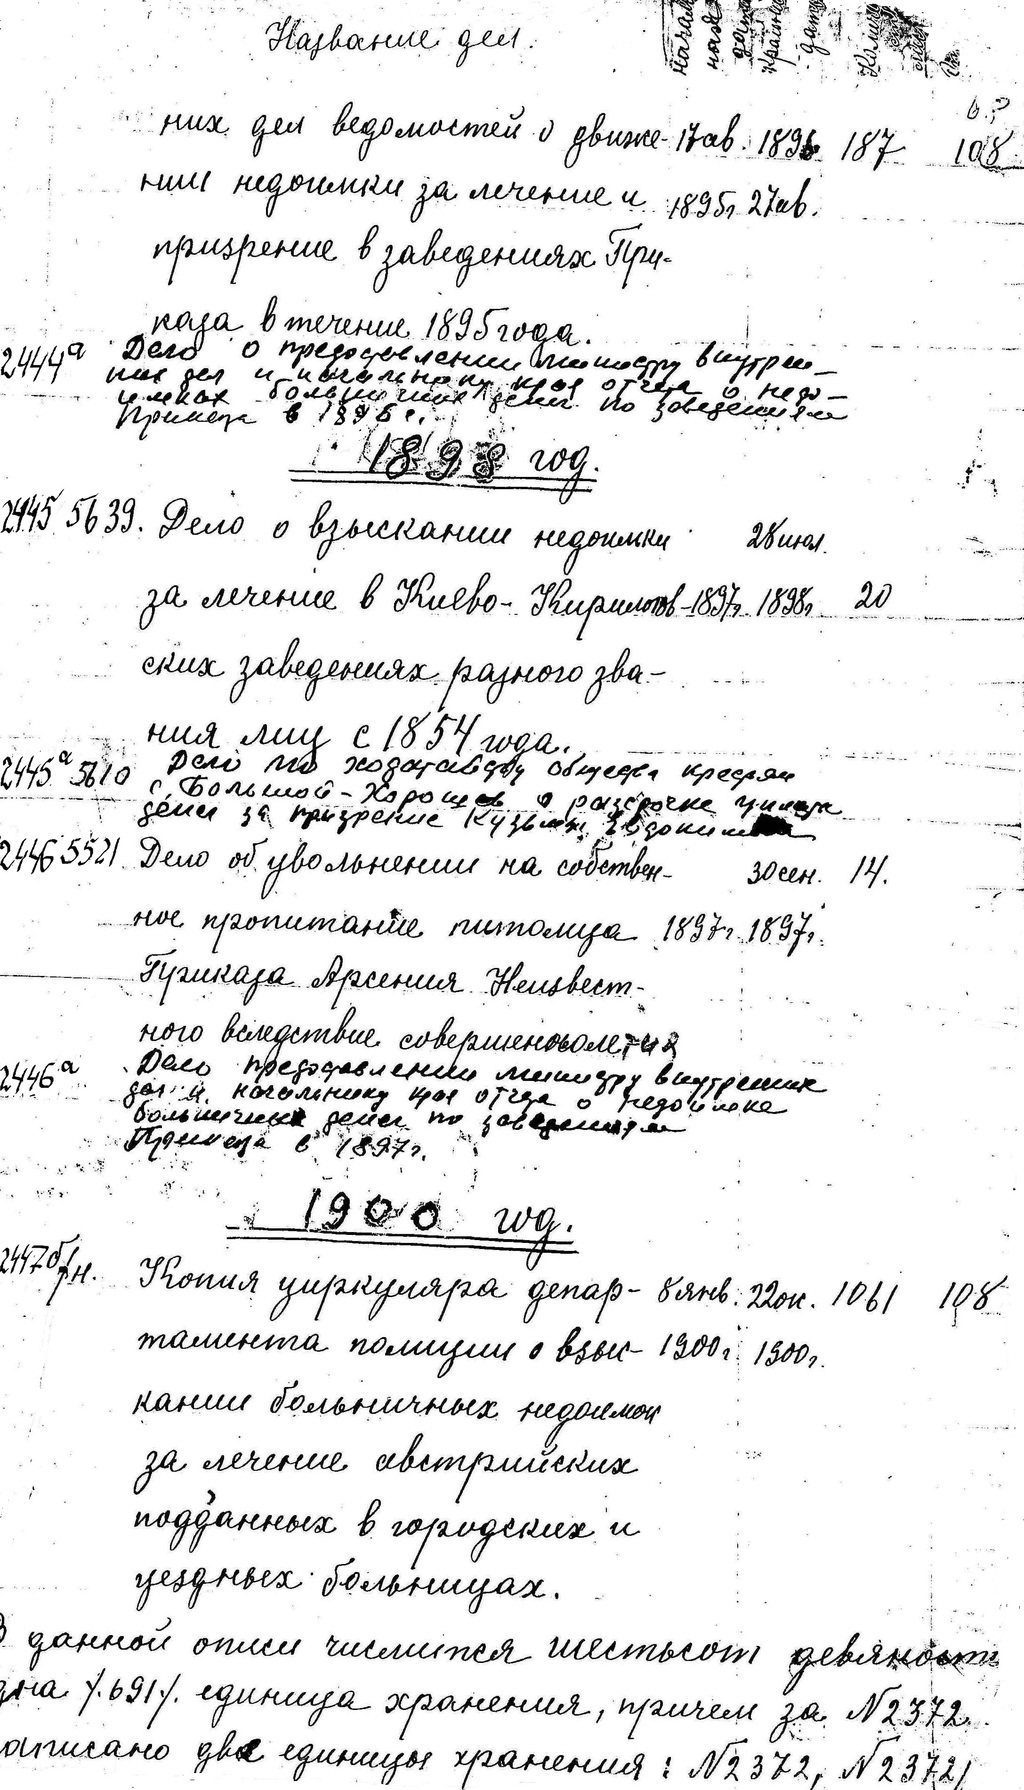 Название дел.
них дел ведомостей о движе- 17 ав. 1896 187 108
нии недоимки за лечение и 1895г. 27 ав.
призрение в заведениях При-
каза в течение 1895 года.
2444а Дело о предоставлении министру внутрен-
них дел и начальнику края отчета о недо-
имках больничных денег по заведениям
Приказа в 1896 г.
1898 год.
2445 5639. Дело о взыскании недоимки 28 июл.
за лечение в Киево-Кирилов- 1897г. 1898г. 20
ских заведениях разного зва-
ния лиц с 1854 года.
2445а 5610 Дело по ходатайству общества крестьян
с. Большой-Хорощев о рассрочке
денег за призрение Кузьмы
2446 5521 Дело об увольнении на собствен- 30 сен. 14.
ное пропитание питомца 1897г. 1897г.
Приказа Арсения Неизвест-
ного вследствие совершеннолетия
2446а Дело предоставлении министру внутренних
дел и начальнику края отчета о недоимке
больничных денег по заведениям
Приказа в 1897г.
1900 год.
2447 б/н. Копия циркуляра депар- 8 янв. 22 ок. 1061 108
тамента полиции о взыс- 1900г. 1900г.
кании больничных недоимок
за лечение австрийских
подданных в городских и
уездных больницах.
В данной описи числится шестьсот девяносто
одна /.691/. единица хранения, причем за №2372
записано две единицы хранения: №2372, №2372/